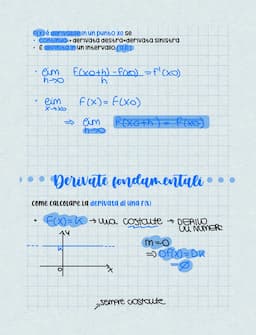 f(x) è derivabile in un punto x0 se
• continua + derivata destra=derivata sinistra
• è definita in un intervallo (a,b)
• lim h→0 F(x0+h)-F(x0) = f'(x0)
h
• lim x→x0 F(x) = F(x0)
⇒ lim h→0 F(x0+h) = F(x0)
Derivate fondamentali
COME CALCOLARE LA DERIVATA DI UNA F(x)
• F(x)=K → una costante → DERIVO UN NUMERO
y
K
m=0
⇒ Df(x)=DK
=0
0
x
sempre costante